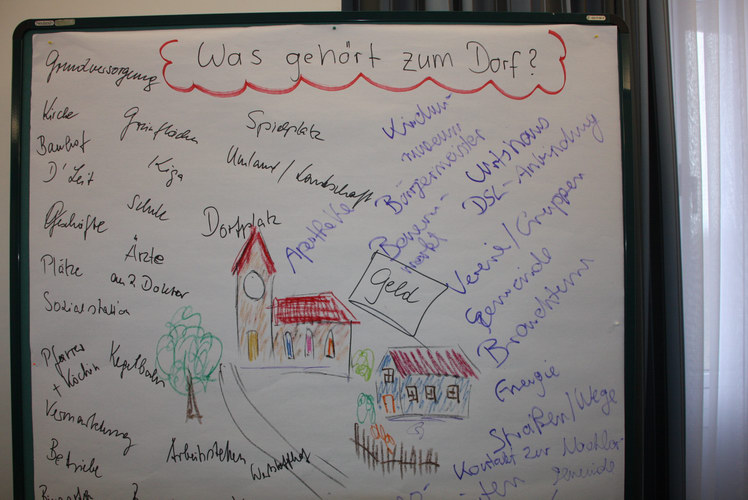 Was gehört zum Dorf?
Grundversorgung
Kirche
Bauhof
D'Leit
Geschäfte
Plätze
Sozialstation
Pfarrer
+ Köchin
Vermarktung
Betriebe
Grünflächen
Kiga
Schule
Ärzte
an 2. Doktor
Kegelbahn
Arbeitsstellen
Wertstoffhof
Spielplatz
Umland / Landschaft
Dorfplatz
Apotheke
Geld
Kinder-
museum
Bürgermeister
Bauern-
markt
Wirtshaus
DSL-Anbindung
Vereine/Gruppen
Gemeinde
Brauchtum
Energie
Straßen/Wege
Kontakt zur Nachbar-
gemeinde